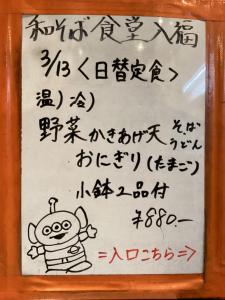 和そば食堂 入福
3/13 <日替定食>
温) 冷)
野菜かきあげ天 そば うどん
おにぎり(たまご)
小鉢2品付
¥880.-
=入口こちら=>